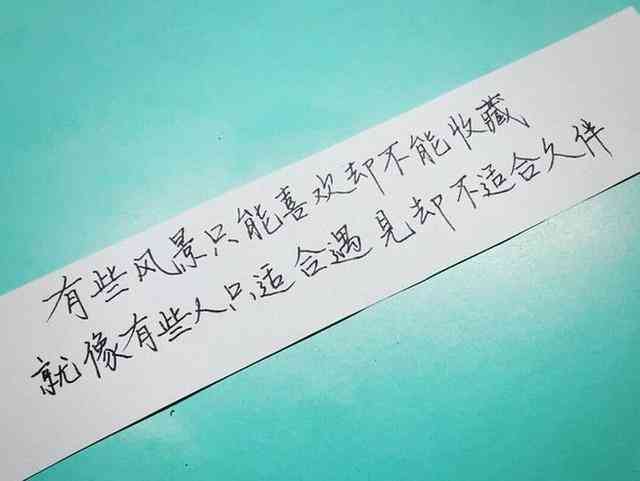 有些风景只能喜欢却不能收藏
就像有些人只适合遇见却不适合久伴